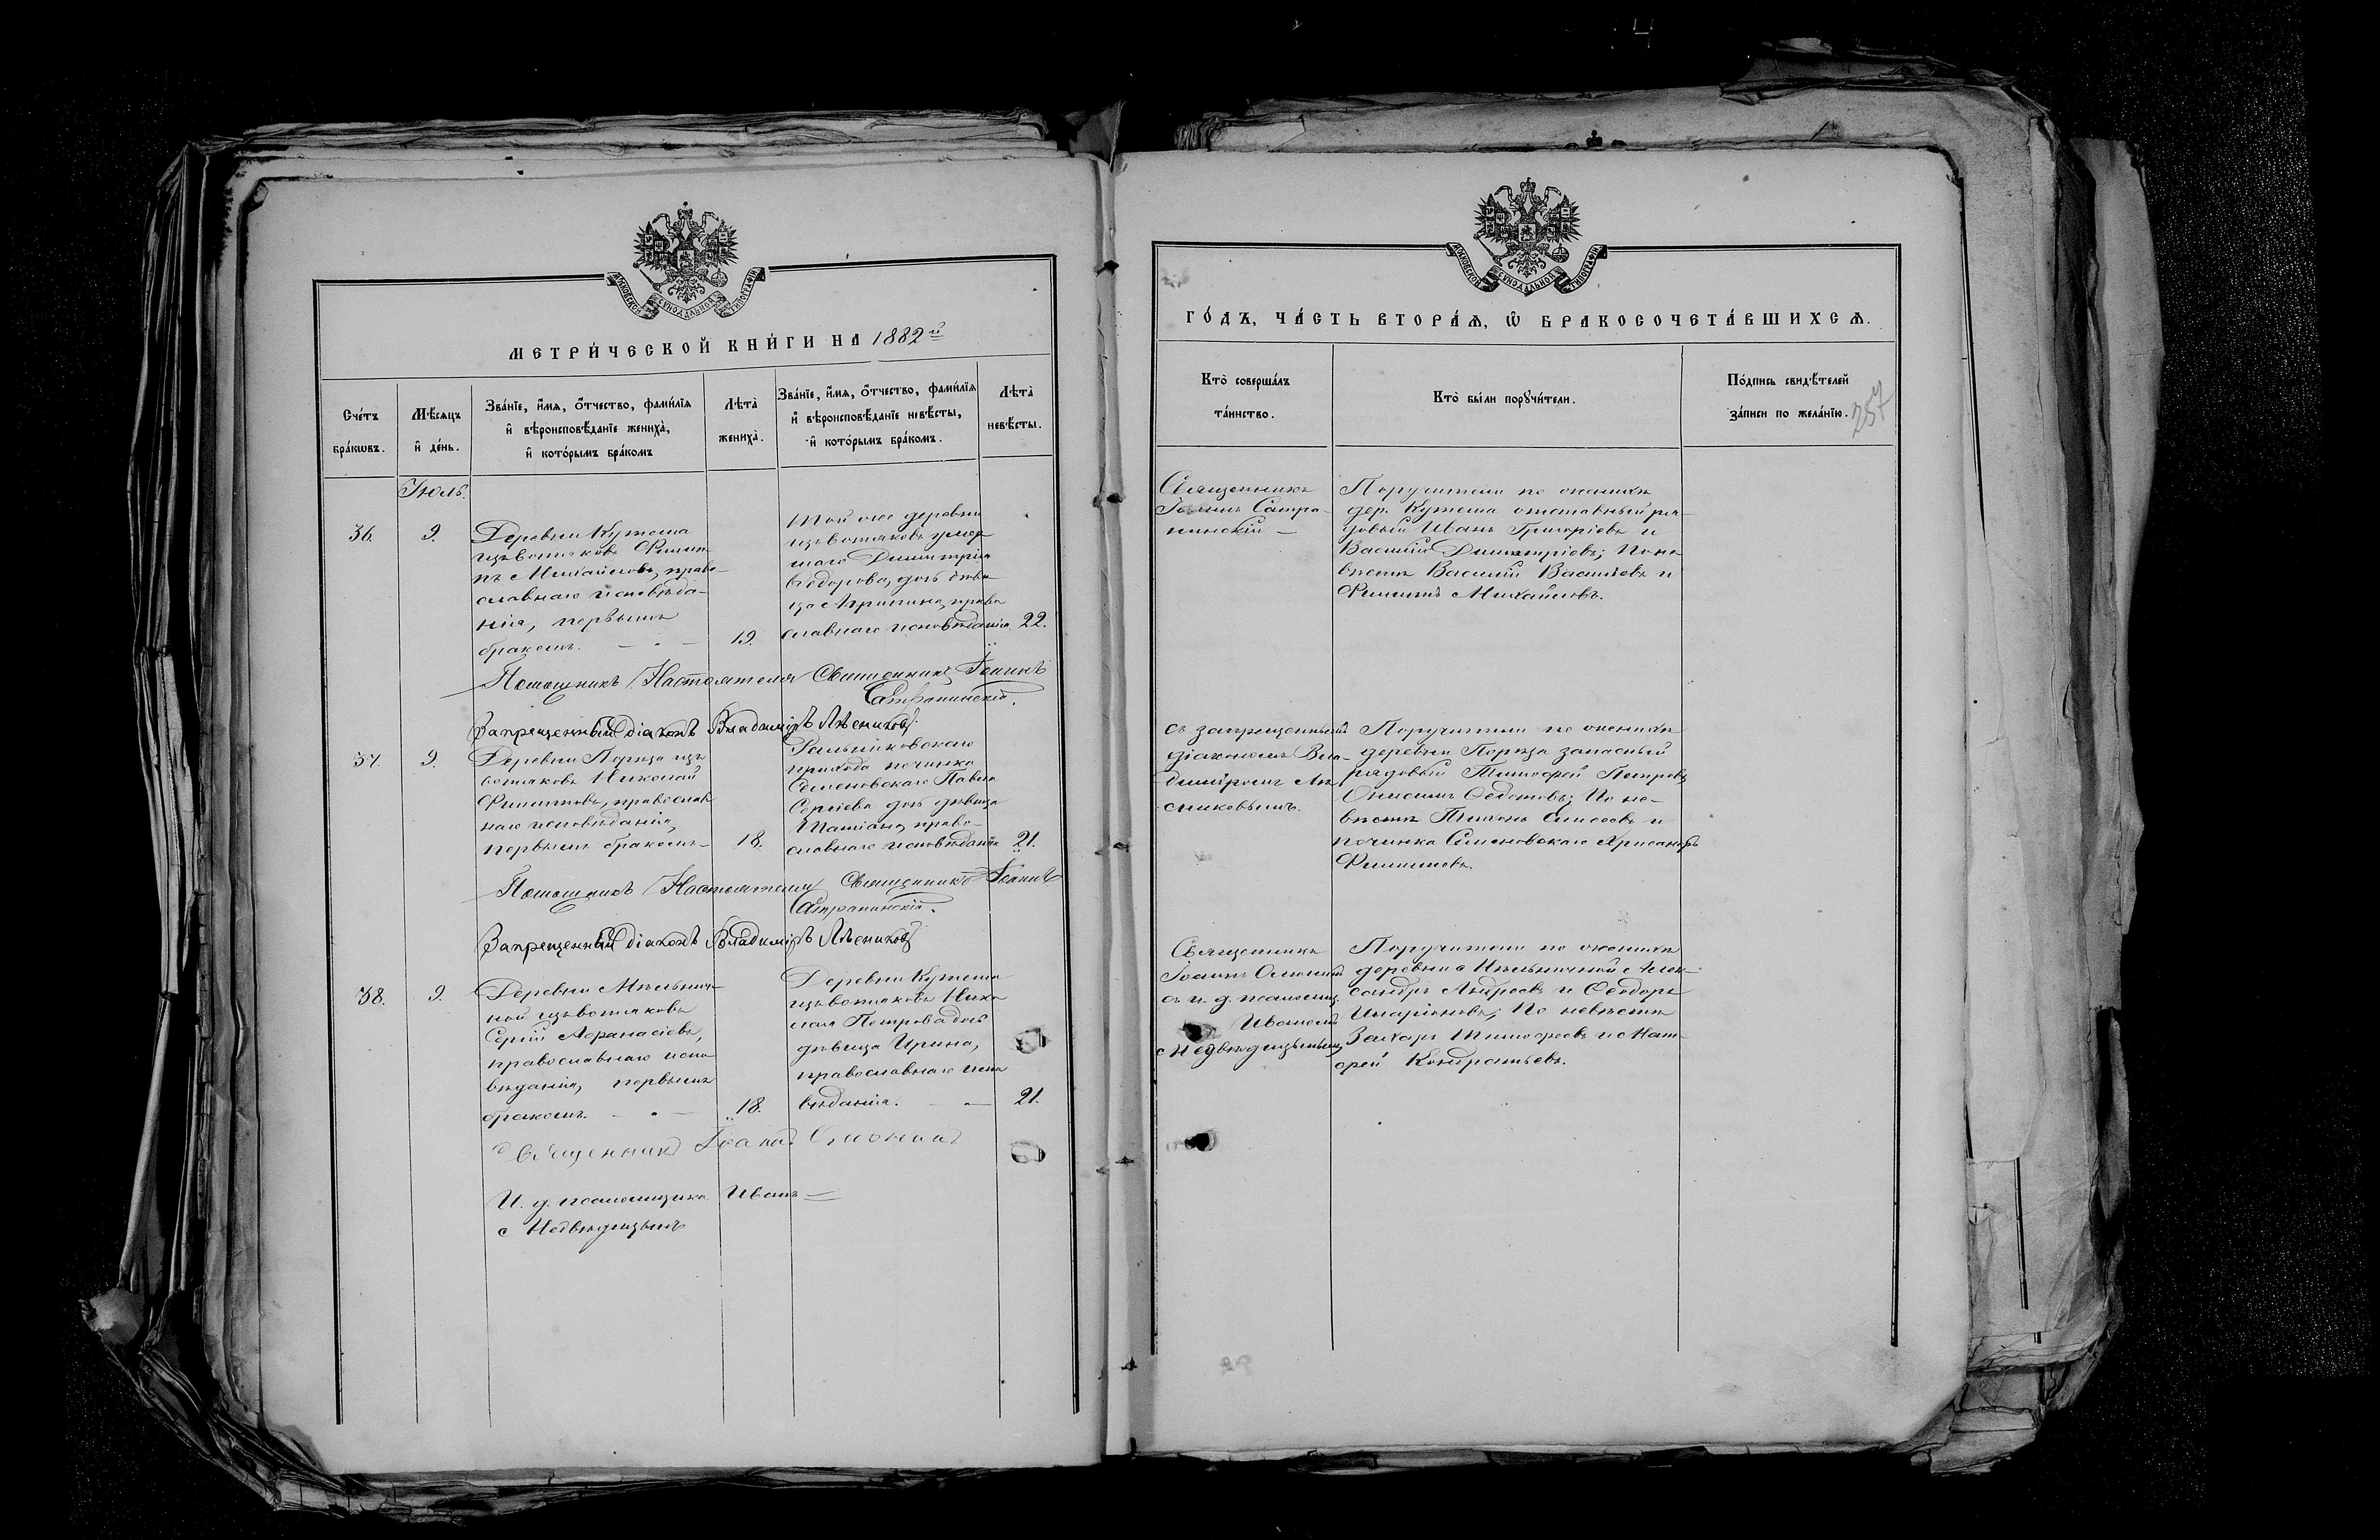 МЕТРИ́ЧЕСКОЙ КНИ́ГИ НА 1882й
Счетъ бра́кѡвъ.
Мѣ́сяцъ и де́нь.
Зва́нїе, и́мѧ, о́тчество, фами́лїѧ
и вѣроисповѣ́данїе жениха̀,
и кото́рымъ бра́комъ
Лѣ́та жениха̀.
Зва́нїе, и́мѧ, о́тчество, фами́лїѧ
и вѣроисповѣ́данїе невѣ́сты,
и кото́рымъ бра́комъ.
Лѣ́та невѣ́сты.
Іюль.
36.
9.
Деревни Кутеша
изъ вотяковъ Филип-
пъ Михайловъ, право-
славнаго исповѣда-
нія, первымъ
бракомъ.
19.
Той же деревни
изъ вотяковъ умер
шаго Димитрія
Ѳедорова, дочь дѣви
ца, право
славнаго исповѣданія
22.
Помощникъ Настоятеля Священникъ Іоаннъ
Сатрапинскій.
Запрещенный діаконъ Владиміръ Лѣсниковъ.
37.
9.
Деревни изъ
вотяковъ Николай
Филипповъ, православ
наго исповѣданія,
первымъ бракомъ
18.
прихода починка
Семеновскаго Павла
Сергіева дочь дѣвица
Татіана, право-
славнаго исповѣданія
21.
Помощникъ Настоятеля Священникъ Іоаннъ
Сатрапинскій.
Запрещенный діаконъ Владиміръ Лѣсниковъ
38.
9.
Деревни Мельнич-
ной изъ вотяковъ
Сергій Аѳанасіевъ,
православнаго испо
вѣданія, первымъ
бракомъ.
18.
Деревни Кутеша
изъ вотяковъ Нико
лая Петрова дочь
дѣвица Ирина,
православнаго испо
вѣданія.
21.
Священникъ Іоаннъ
И. д. псаломщика Иванъ
Медвѣдицынъ
ГО́ДЪ, ЧА́СТЬ ВТОРА́Ѧ, Ѡ БРАКОСОЧЕТА́ВШИХСѦ.
Кто̀ соверша́лъ
та́инство.
Кто̀ бы́ли порꙋчи́тели.
По́дпись свидѣ́телей
за́писи по жела́нїю.
257
Священникъ
Іоаннъ Сатра-
пинскій
Поручители по женихѣ
дер. Кутеша отставный ря-
довый Иванъ Григоріевъ и
Василій Димитріевъ; По не
вѣстѣ Василій Васильевъ и
Филиппъ Михайловъ.
съ запрещеннымъ
діакономъ Вла-
диміромъ Лѣ-
сниковымъ.
Поручители по женихѣ
деревни запасный
рядовый Тимофей Петровъ
Онисимъ Ѳедотовъ; По не-
вѣстѣ и
починка Семеновскаго
Филипповъ.
Священникъ
Іоаннъ
съ и. д. псаломщ.
Иваномъ
Медвѣдицынымъ
Поручители по женихѣ
деревни Мельничной Алек-
сандръ Андреевъ и Ѳеодоръ
Иларіоновъ; По невѣстѣ
Захаръ Тимофеевъ и Мат-
фей Кондратьевъ.